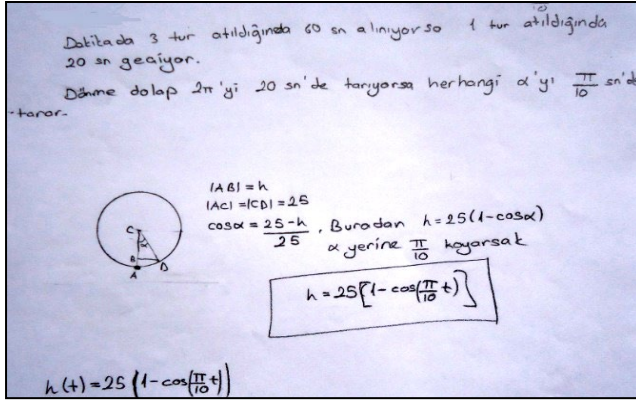 Dakikada 3 tur atıldığında 60 sn alınıyorsa 1 tur atıldığında
20 sn geçiyor.
Dönme dolap 2π'yi 20 sn'de tarıyorsa herhangi α'yı π/10 sn'de
tarar.
|AB| = h
|AC| = |CD| = 25
cosα = (25-h)/25, Buradan h = 25(1-cosα)
α yerine π/10 koyarsak
h = 25[1-cos(π/10 t)]
C
α
B
A
D
h(t) = 25(1-cos(π/10 t))